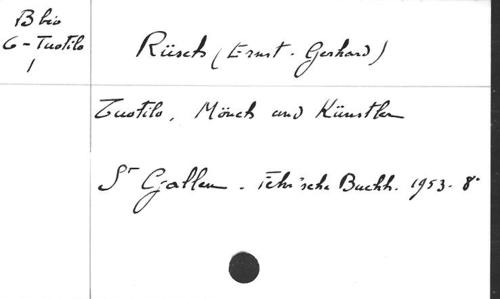 B bio
6 - Tuotilo
1
Rüsch (Ernst - Gerhard)
Tuotilo, Mönch und Künstler
St Gallen - Fehr'sche Buchh. 1953 - 8°